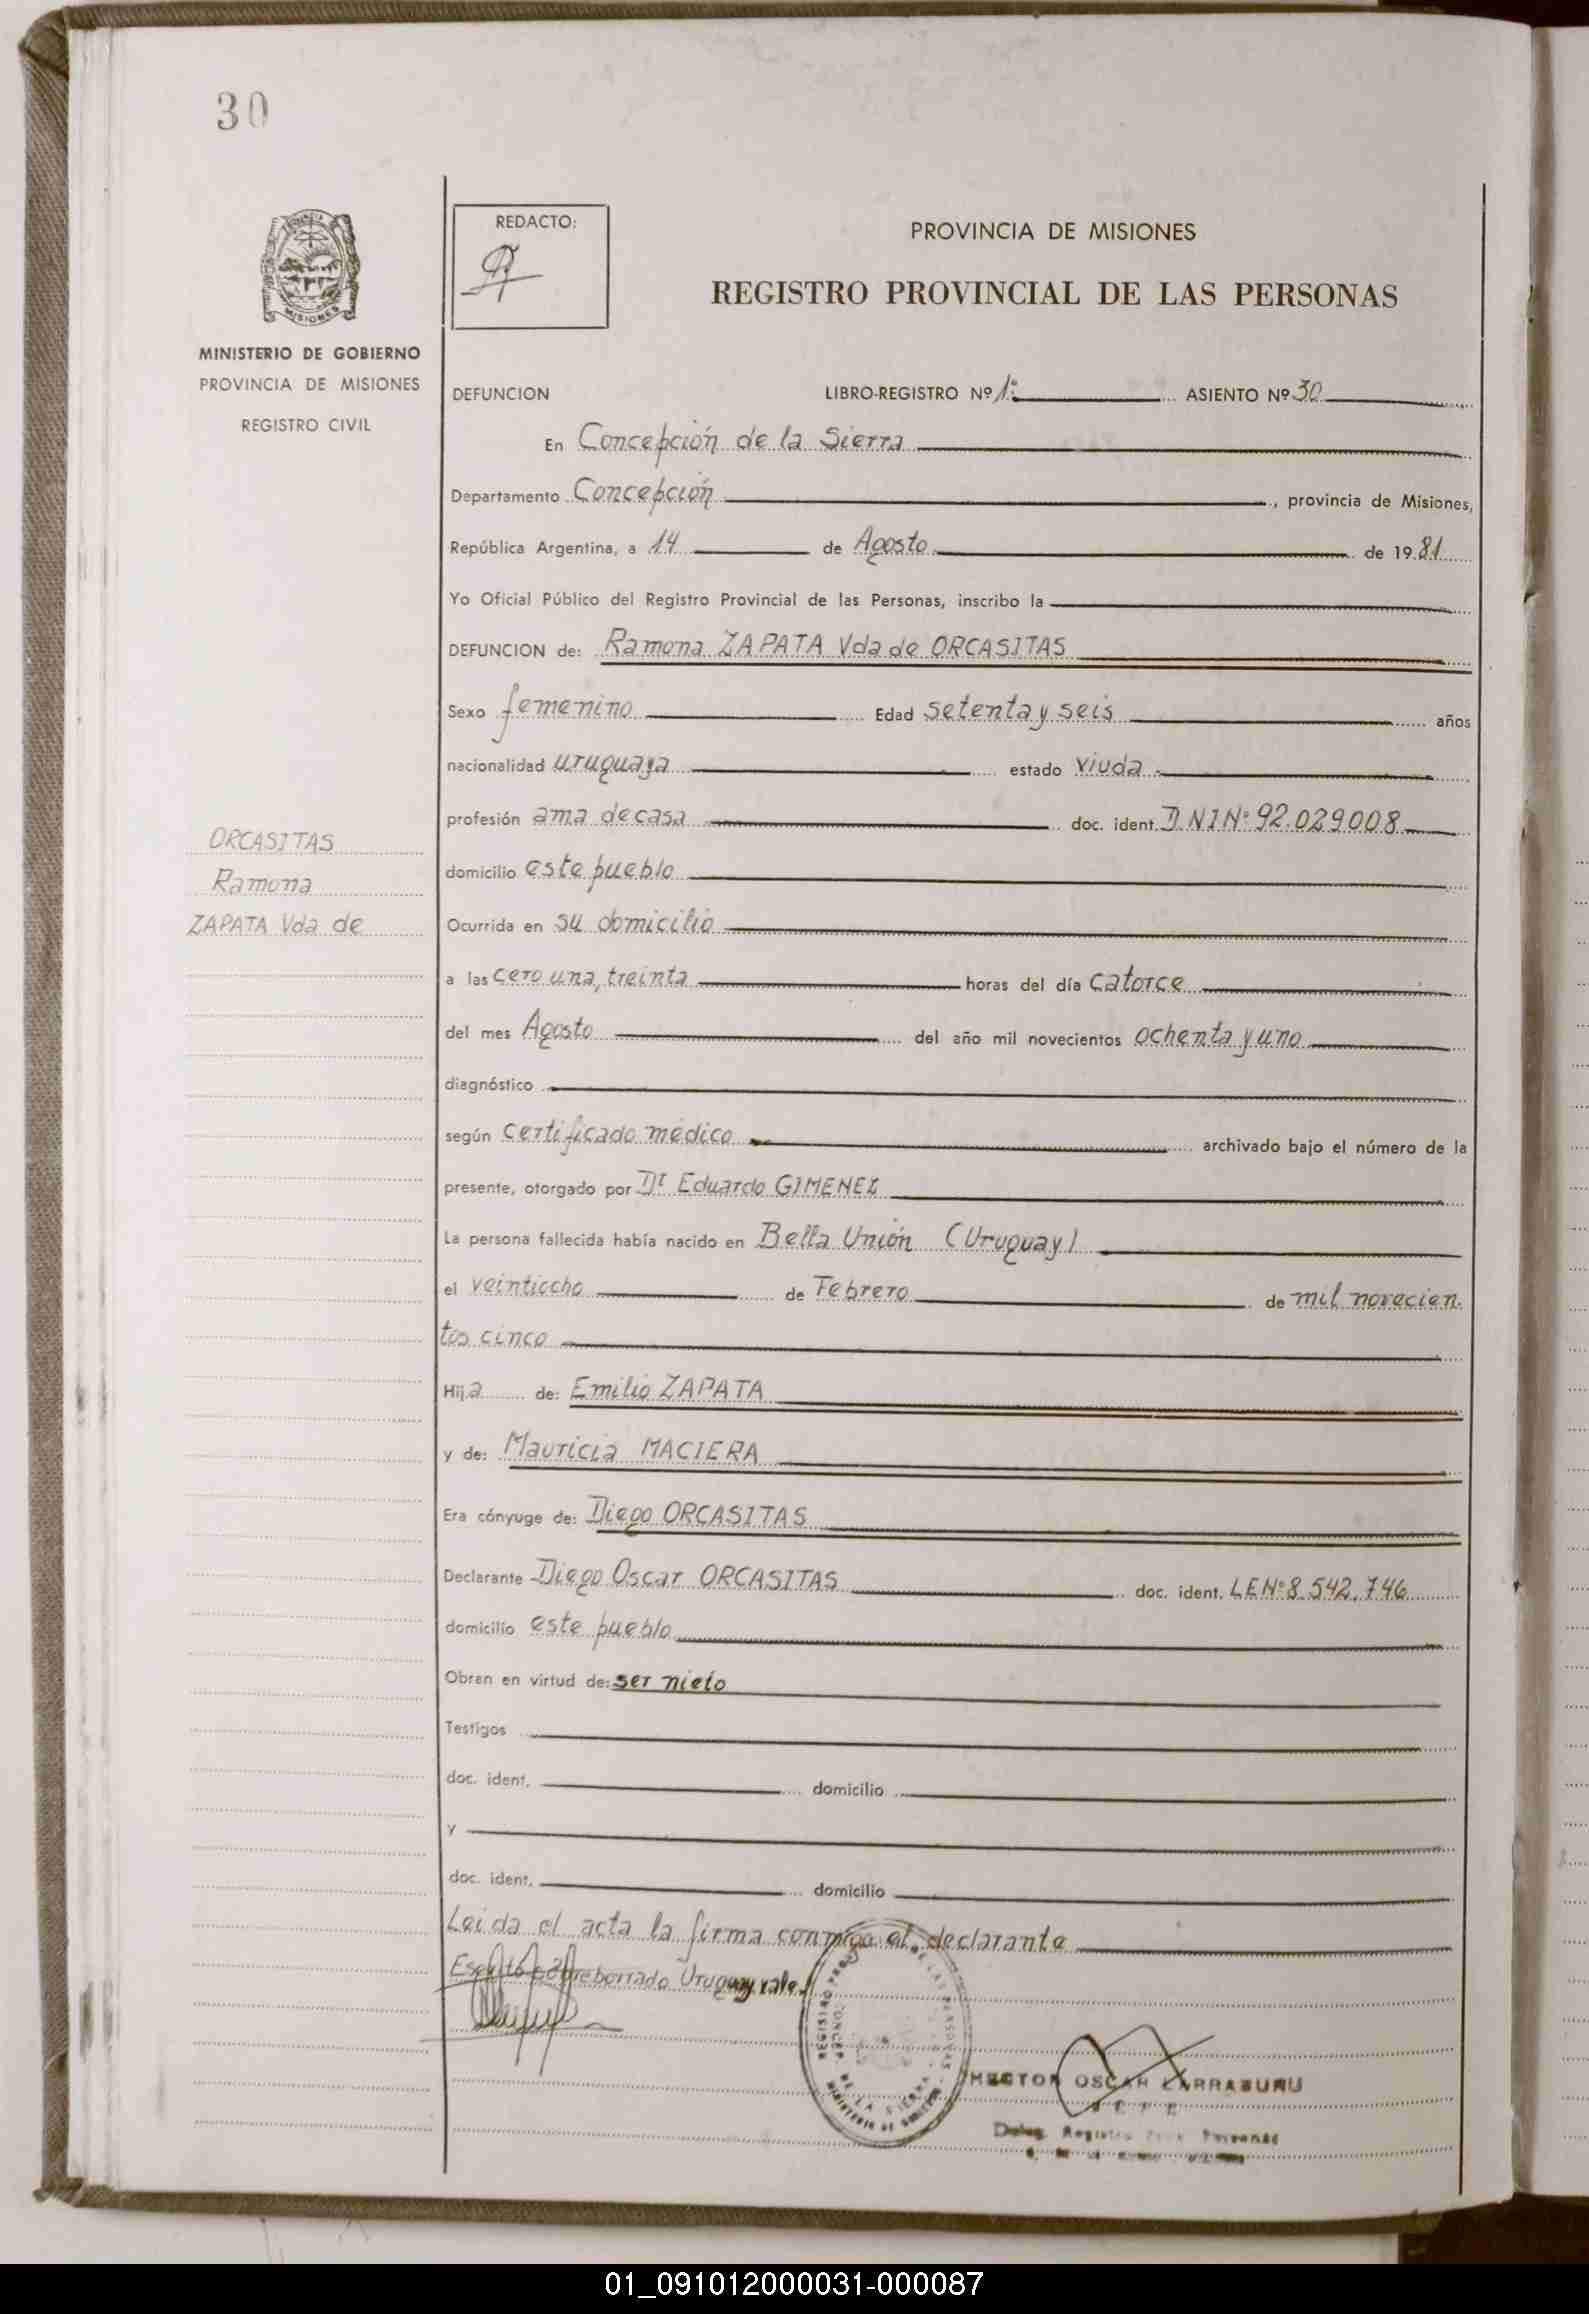 30
MINISTERIO DE GOBIERNO
PROVINCIA DE MISIONES
REGISTRO CIVIL
ORCASITAS
Ramona
ZAPATA Vda de
REDACTO:
PROVINCIA DE MISIONES
REGISTRO PROVINCIAL DE LAS PERSONAS
DEFUNCION LIBRO-REGISTRO Nº 1º ASIENTO Nº 30
En Concepción de la Sierra
Departamento Concepción, provincia de Misiones,
República Argentina, a 14 de Agosto de 1981
Yo Oficial Público del Registro Provincial de las Personas, inscribo la
DEFUNCION de: Ramona ZAPATA Vda de ORCASITAS
Sexo femenino Edad setenta y seis años
nacionalidad uruguaya estado viuda
profesión ama de casa doc. ident. DNI Nº 92.029008
domicilio este pueblo
Ocurrida en su domicilio
a las cero una, treinta horas del día catorce
del mes Agosto del año mil novecientos ochenta y uno
diagnóstico
según certificado médico archivado bajo el número de la
presente, otorgado por Dr Eduardo GIMENEZ
La persona fallecida había nacido en Bella Unión (Uruguay)
el veintiocho de Febrero de mil novecien.
tos cinco
Hija de: Emilio ZAPATA
y de: Mauricia MACIERA
Era cónyuge de: Diego ORCASITAS
Declarante Diego Oscar ORCASITAS doc. ident. LE Nº 8.542.746
domicilio este pueblo
Obran en virtud de: ser nieto
Testigos
doc. ident. domicilio
y
doc. ident. domicilio
Leida el acta la firma conmigo el declarante
Escrito sobreborrado Uruguay vale.
HECTOR OSCAR LARRABURU
JEFE
01_091012000031-000087